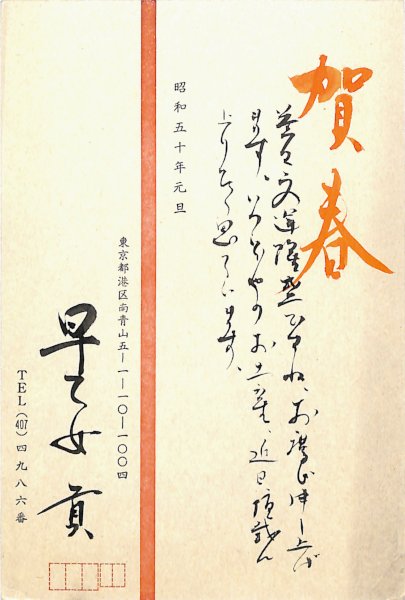 賀春
益々文運隆盛 、お慶び申し上げ
ます。いつぞやのお土産、近日頂戴
上りたく思っています。
昭和五十年元旦
東京都港区南青山五―一―一〇―一〇〇四
早乙女貢
TEL(407)四九八六番